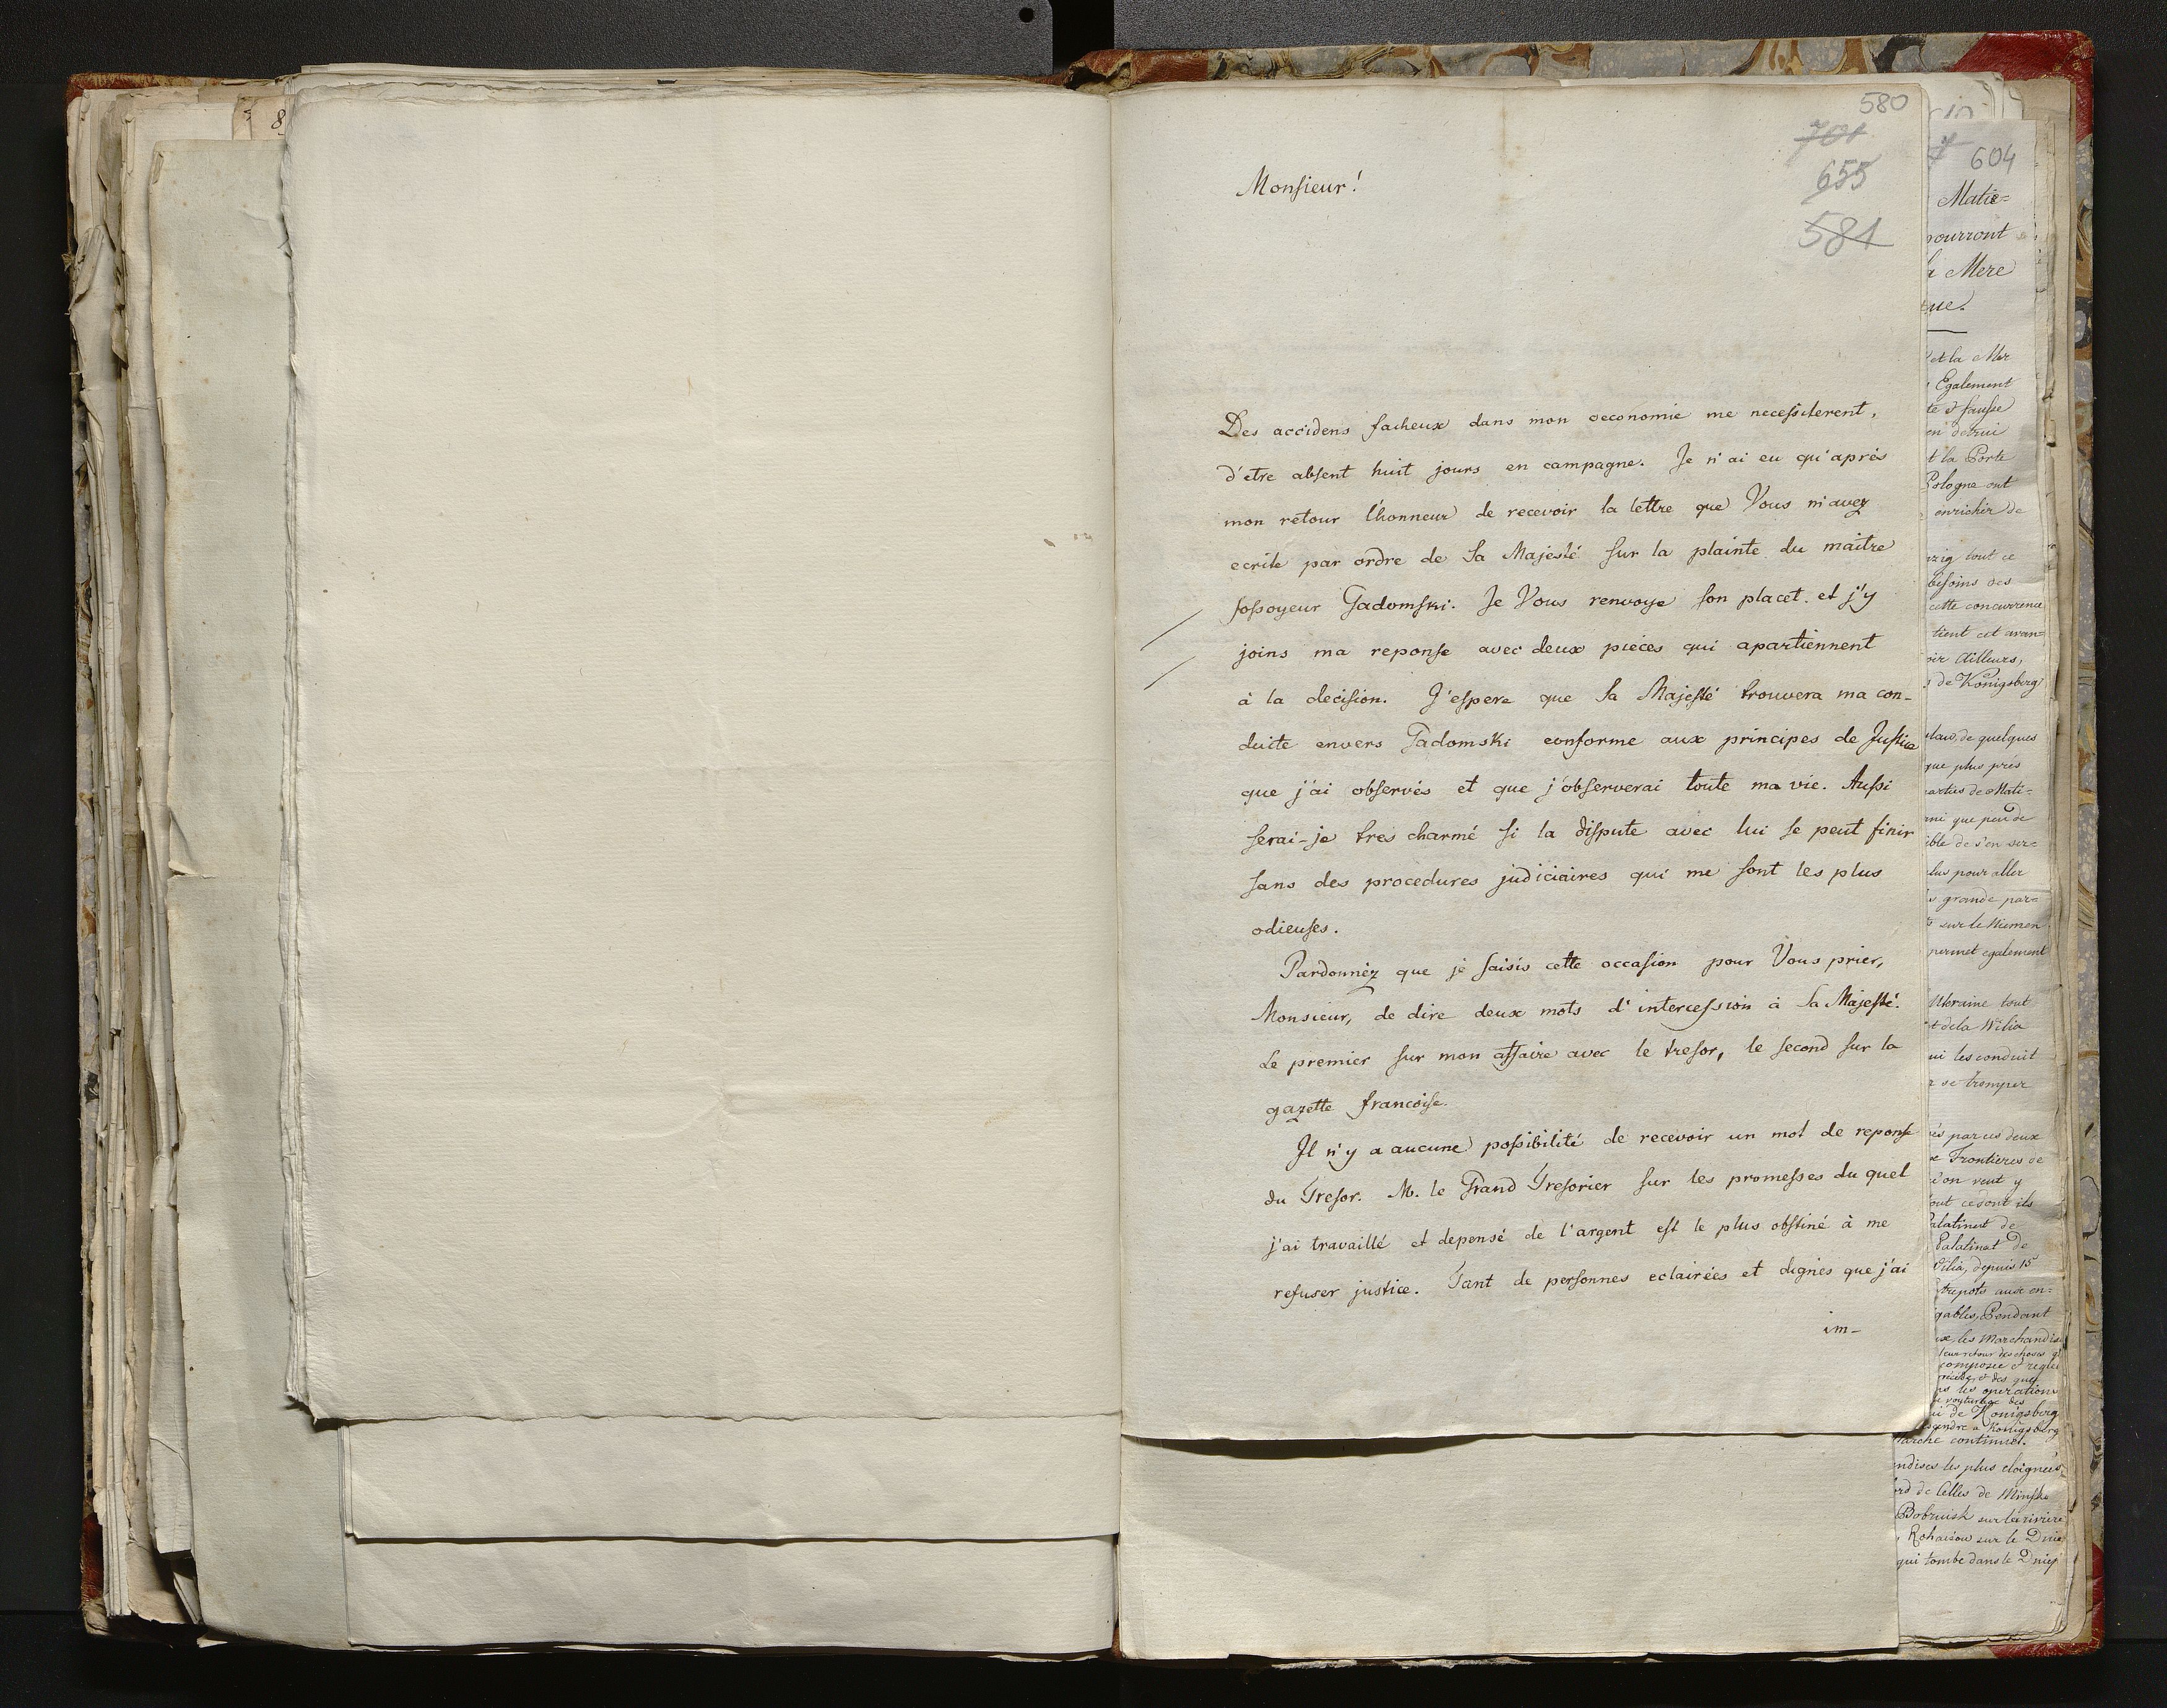 8
580
701
655
581
Monsieur!
Des accidens facheux dans mon oeconomie me necessiterent,
d'etre absent huit jours en campagne. Je n'ai eu qu'après
mon retour l'honneur de recevoir la lettre que Vous m'avez
ecrite par ordre de Sa Majesté sur la plainte du maitre
fossoyeur Gadomski. Je Vous renvoye son placet. et j'y
joins ma reponse avec deux pieces qui apartiennent
à la decision. J'espere que Sa Majesté trouvera ma con-
duite envers Gadomski conforme aux principes de Justice
que j'ai observés et que j'observerai toute ma vie. Aussi
serai-je tres charmé si la dispute avec lui se peut finir
sans des procedures judiciaires qui me sont les plus
odieuses.
Pardonnéz que je saisis cette occasion pour Vous prier,
Monsieur, de dire deux mots d'intercession à Sa Majesté.
Le premier sur mon affaire avec le tresor, le second sur la
gazette francoise.
Il n'y a aucune possibilité de recevoir un mot de reponse
du Tresor. M. le Grand Tresorier sur les promesses du quel
j'ai travaillé et depensé de l'argent est le plus obstiné à me
refuser justice. Tant de personnes eclairées et dignes que j'ai
im-
7 604
Matie=
pourront
la Mere
que.
et la Mer
Egalement
te & fausse
en detrui
t la Porte
Pologne ont
enrichir de
zig tout ce
besoins des
cette concurrence
tient cet avan=
oir Ailleurs,
de Königsberg
de quelques
que plus près
arties de Mati=
que peu de
ible de s'en ser=
lus pour aller
s grande par=
sur le Niemen
permet egalement
Ukraine tout
et de la Wilia
ui les conduit
se tromper
par ces deux
Frontieres de
on veut y
tout ce dont ils
Palatinat de
Palatinat de
Wilia, depuis 15
Entrepots aux en=
gables, Pendant
les Marchandise
leur retour des choses q
composée & reglé
et des que
les operations
voyturage des
de Konigsberg
Konigsberg
marche continuel.
ndises les plus eloignées
d de Celles de Minsk
Bobruisk sur la riviere
Rohaczow sur le Dnie
qui tombe dans le Dniep